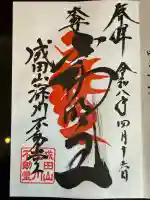 奉拝 令和八年四月十六日
不動明王
成田山深川不動堂
成田山
不動堂